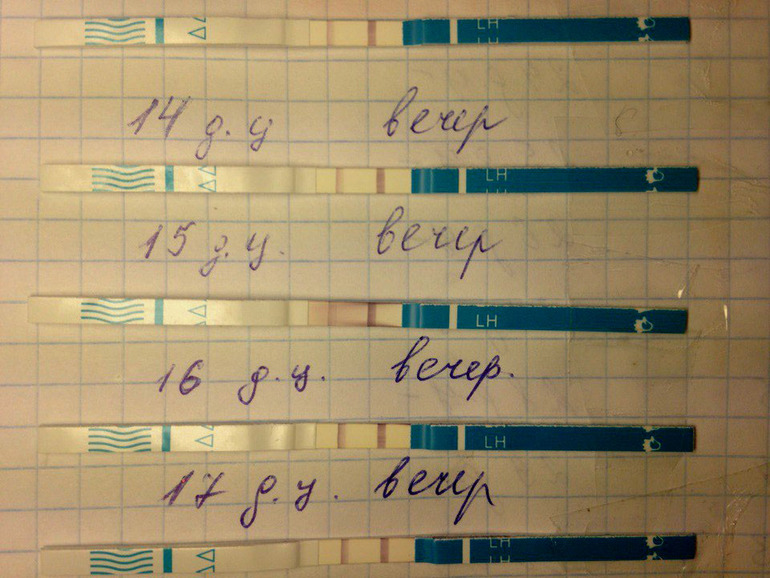 LH
14 д.ц вечер
LH
15 д.ц. вечер
LH
16 д.ц. вечер.
LH
17 д.ц. вечер
LH